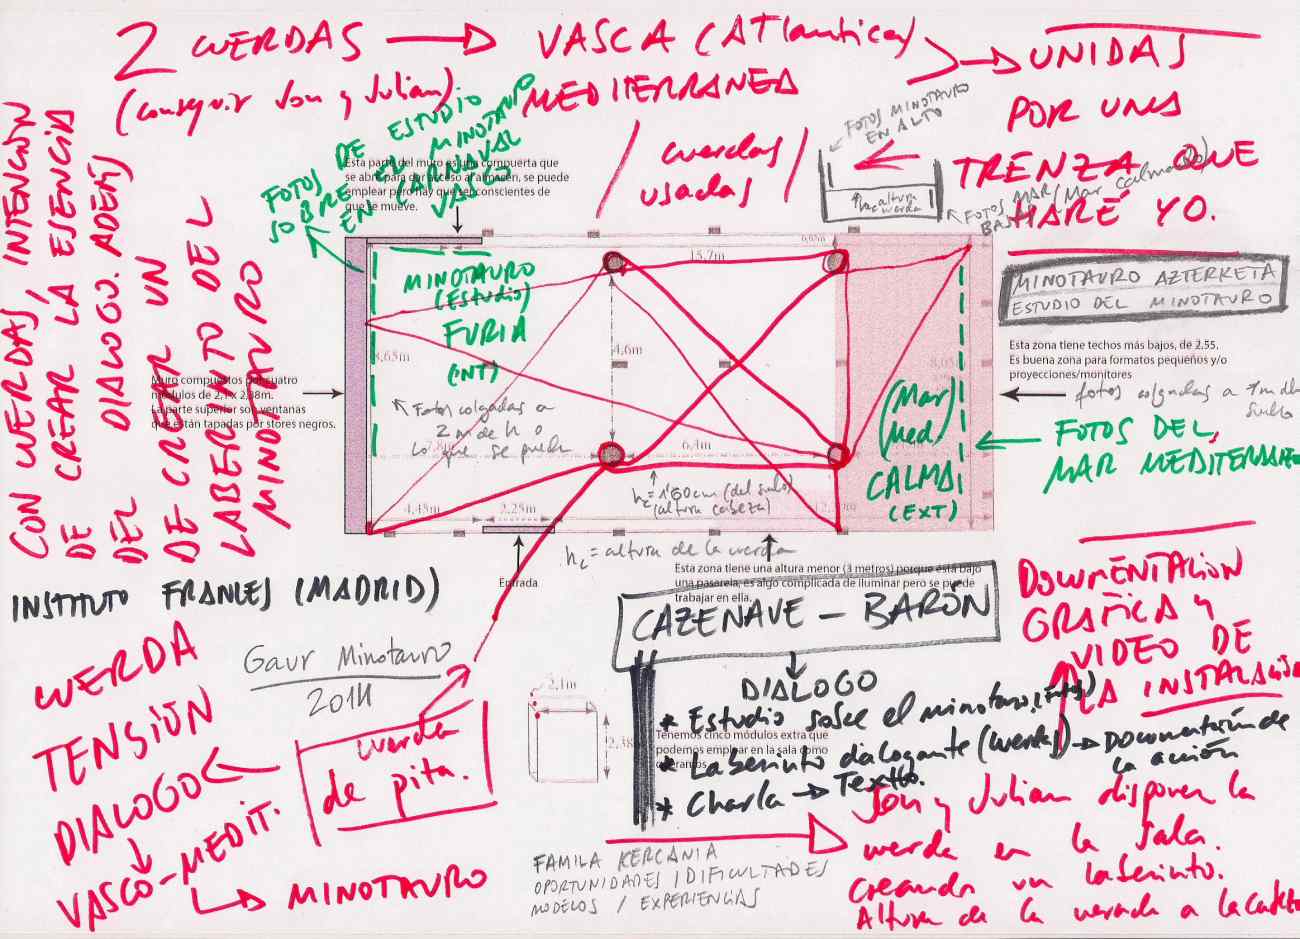 2 CUERDAS → VASCA (ATlantica)
(conseguir Jon y Julian) MEDITERRANEA
UNIDAS
POR UNA
TRENZA QUE
HARÉ YO.
cuerdas
usadas
FOTOS MINOTAURO
EN ALTO
h altura
cuerda
FOTOS MAR (Mar calmado)
FOTOS DE ESTUDIO
SOBRE EL MINOTAURO
EN CARNAVAL
VASCO
Esta parte del muro es una compuerta que
se abre para dar acceso al almacén, se puede
emplear pero hay que ser conscientes de
que se mueve.
CON CUERDAS, INTENCIÓN
DE CREAR LA ESENCIA
DEL DIALOGO. ADEMÁS
DE CREAR UN
LABERINTO DEL
MINOTAURO
Muro compuestos por cuatro
módulos de 2,1 x 2,38m.
La parte superior son ventanas
que están tapadas por stores negros.
MINOTAURO
(Estudio)
FURIA
(INT)
Fotos colgadas a
2 m de h o
lo que se pueda
15,7m
6,65m
8,65m
4,6m
7,8m
6,4m
8,05m
4,45m
2,25m
h꜀ = 1'60cm (del suelo)
(altura cabeza)
(Mar
Med)
CALMA
(EXT)
MINOTAURO AZTERKETA
ESTUDIO DEL MINOTAURO
Esta zona tiene techos más bajos, de 2.55.
Es buena zona para formatos pequeños y/o
proyecciones/monitores
fotos colgadas a 1m del
suelo
FOTOS DEL
MAR MEDITERRANEO
h꜀ = altura de la cuerda
Entrada
Esta zona tiene una altura menor (3 metros) porque está bajo
una pasarela, es algo complicada de iluminar pero se puede
trabajar en ella.
INSTITUTO FRANCES (MADRID)
CAZENAVE – BARÓN
DIALOGO
* Estudio sobre el minotauro (Fotos)
* Laberinto dialogante (cuerdas) → Documentación de
la acción
* Charla → Textto.
DOCUMENTACION
GRAFICA y
VIDEO DE
LA INSTALACIÓN
Gaur Minotauro
2014
CUERDA
TENSIÓN
DIALOGO
VASCO-MEDIT.
MINOTAURO
cuerda
de pita.
2,1m
2,38m
Tenemos cinco módulos extra que
podemos emplear en la sala como
queramos.
Jon y Julian disponen la
cuerda en la sala.
creando un laberinto.
Altura de la cuerda a la cabeza
FAMILA KERCANIA
OPORTUNIDADES / DIFICULTADES
MODELOS / EXPERIENCIAS